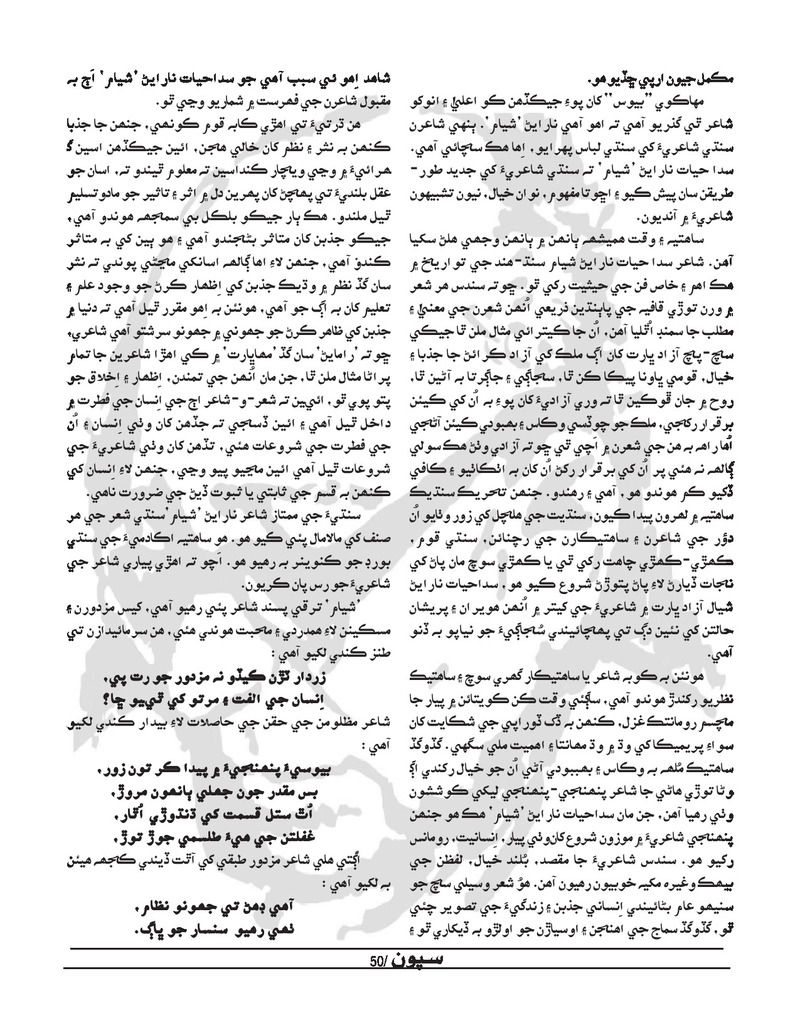 مڪمل جيون ارپي ڇڏيو هو.
مهاڪوي ”بيوس“ کان پوءِ جيڪڏهن ڪو اعليٰ ۽ انوکو
شاعر ٿي گذريو آهي ته اهو آهي نارايڻ ’شيام‘. ٻنهي شاعرن
سنڌي شاعريءَ کي سنڌي لباس پهرايو، اِها هڪ سچائي آهي.
سدا حيات نارايڻ ’شيام‘ ته سنڌي شاعريءَ کي جديد طور-
طريقن سان پيش ڪيو ۽ اڇوتا مفهوم، نوان خيال، نيون تشبيهون
شاعريءَ ۾ آنديون.
ساهتيه ۽ وقت هميشهه ٻانهن ۾ ٻانهن وجهي هلڻ سکيا
آهن. شاعر سدا حيات نارايڻ شيام سنڌ-هند جي تواريخ ۾
هڪ اهم ۽ خاص فن جي حيثيت رکي ٿو. ڇو ته سندس هر شعر
۾ ورن توڙي قافيه جي پابندين ذريعي اُنهن شعرن جي معنيٰ ۽
مطلب جا سمنڊ اُٿليا آهن، اُن جا ڪيترائي مثال ملن ٿا جيڪي
سچ-پچ آزاد ڀارت کان اڳ ملڪ کي آزاد ڪرائڻ جا جذبا ۽
خيال، قومي ڀاونا پيڪا ڪن ٿا، سڄاڳي ۽ جاڳرتا به آڻين ٿا،
روح ۾ جان ڦوڪين ٿا ته وري آزاديءَ کان پوءِ به اُن کي ڪيئن
برقرار رکجي، ملڪ جو چوٽسي وڪاس ۽ بهبودي ڪيئن آڻجي
اُهارا هه به من جي شعرن ۾ اَچي ٿي ڇو ته آزادي وٺڻ هڪ سولي
ڳالهه نه هئي پر اُن کي برقرار رکڻ اُن کان به اڻکائيو ۽ ڪافي
ڏکيو ڪم هوندو هو، آهي ۽ رهندو. جنهن تحريڪ سنڌيڪ
ساهتيه ۾ لهرون پيدا ڪيون، سنڌيت جي هلچل کي زور وٺايو اُن
دؤر جي شاعرن ۽ ساهتيڪارن جي رچنائن، سنڌي قوم،
ڪهڙي-ڪهڙي چاهت رکي ٿي يا ڪهڙي سوچ مان پاڻ کي
نجات ڏيارڻ لاءِ پاڻ پتوڙڻ شروع ڪيو هو، سدا حيات نارايڻ
شيال آزاد ڀارت ۾ شاعريءَ جي کيتر ۾ اُنهن هويران ۽ پريشان
حالتن کي نئين دڳ تي پهچائيندي سُڄاڳيءَ جو نياپو به ڏنو
آهي.
هونئن به ڪو به شاعر يا ساهتيڪار گهري سوچ ۽ ساهتيڪ
نظريو رکندڙ هوندو آهي، سڳئي وقت ڪن ڪويتائن ۾ پيار جا
مجسم رومانٽڪ غزل، ڪنهن به ڏک ڏوراپي جي شڪايت کان
سواءِ پريميڪا کي وڌ ۾ وڌ مهانتا ۽ اهميت ملي سگهي. گڏوگڏ
ساهتيڪ مُلهه به وڪاس ۽ بهبودي آڻي اُن جو خيال رکندي اڳ
وڻا توڙي هاڻي جا شاعر پنهنجي-پنهنجي ليکي ڪوششون
وٺي رهيا آهن، جن مان سدا حيات نارايڻ ’شيام‘ هڪ هو جنهن
پنهنجي شاعريءَ ۾ موزون شروع کان وٺي پيار، اِنسانيت، رومانس
رکيو هو. سندس شاعريءَ جا مقصد، بُلند خيال، لفظن جي
بيهڪ وغيره مکيه خوبيون رهيون آهن. هوُ شعر وسيلي سچ جو
سنيهو عام بڻائيندي اِنساني جذبن ۽ زندگيءَ جي تصوير چٽي
ٿو، گڏوگڏ سماج جي اهنجن ۽ اوسياڙن جو اولڙو به ڏيکاري ٿو ۽
شاهد اِهو ئي سبب آهي جو سدا حيات نارايڻ ’شيام‘ اَڄ به
مقبول شاعرن جي فهرست ۾ شماريو وڃي ٿو.
هن ڌرتيءَ تي اهڙي ڪا به قوم ڪونهي، جنهن جا جذبا
ڪنهن به نثر ۽ نظم کان خالي هجن، ائين جيڪڏهن اسين گ
هرائيءَ ۾ وڃي ويچار ڪنداسين ته معلوم ٿيندو ته، اسان جو
عقل بلنديءَ تي پهچڻ کان پهرين دل ۾ اثر ۽ تاثير جو مادو تسليم
ٿيل ملندو. هڪ ٻار جيڪو بلڪل بي سمجهه هوندو آهي،
جيڪو جذبن کان متاثر بڻجندو آهي ۽ هو ٻين کي به متاثر
ڪندؤ آهي، جنهن لاءِ اها ڳالهه اسانکي مڃڻي پوندي ته نثر
سان گڏ نظم ۾ وڌيڪ جذبن کي اِظهار ڪرڻ جو وجود علم ۽
تعليم کان به اڳ جو آهي، هونئن به اِهو مقرر ٿيل آهي ته دنيا ۾
جذبن کي ظاهر ڪرڻ جو جهوني ۾ جهونو سرشتو آهي شاعري،
ڇو ته ’رامايڻ‘ سان گڏ ’مهاڀارت‘ ۾ کي اهڙا شاعرين جا تمام
پراڻا مثال ملن ٿا، جن مان اُنهن جي تمدن، اِظهار ۽ اِخلاق جو
پتو پوي ٿو، ائيين ته شعر-و-شاعر اڄ جي اِنسان جي فطرت ۾
داخل ٿيل آهي ۽ ائين ڏسجي ته جڏهن کان وٺي اِنسان ۽ اُن
جي فطرت جي شروعات هئي، تڏهن کان وٺي شاعريءَ جي
شروعات ٿيل آهي ائين مڃيو پيو وڃي، جنهن لاءِ اِنسان کي
ڪنهن به قسم جي ثابتي يا ثبوت ڏيڻ جي ضرورت ناهي.
سنڌيءَ جي ممتاز شاعر نارايڻ ’شيام‘ سنڌي شعر جي هر
صنف کي مالامال پئي ڪيو هو. هو ساهتيه اڪادميءَ جي سنڌي
بورڊ جو ڪنوينر به رهيو هو. اَڇو ته اهڙي پياري شاعر جي
شاعريءَ جو رس پان ڪريون.
’شيام‘ ترقي پسند شاعر پئي رهيو آهي، کيس مزدورن ۽
مسڪينن لاءِ همدردي ۽ محبت هوندي هئي، هن سرمائيدارن تي
طنز ڪندي لکيو آهي :
زردار تڙن ڪيڏو نه مزدور جو رت پي،
اِنسان جي الفت ۽ مرتو کي ٿييو ڇا؟
شاعر مظلومن جي حقن جي حاصلات لاءِ بيدار ڪندي لکيو
آهي :
بيوسيءَ پنهنجيءَ ۾ پيدا ڪر تون زور،
بس مقدر جون جهلي ٻانهون مروڙ،
اُٿ ستل قسمت کي ڌنڌوڙي اُٿار،
غفلتن جي هيءَ طلسمي جوڙ توڙ،
اڳتي هلي شاعر مزدور طبقي کي آٿت ڏيندي ڪجهه هيئن
به لکيو آهي :
آهي ڊهڻ تي جهونو نظام،
نهي رهيو سنسار جو ڀاڳ.
سپون /50